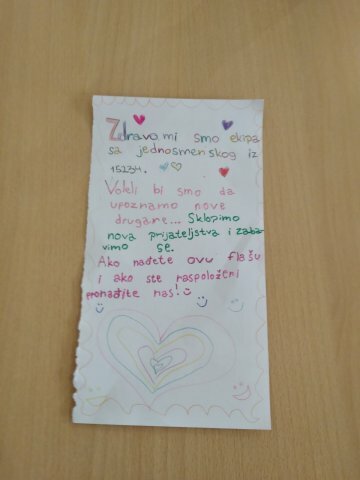 Zdravo mi smo ekipa
sa jednosmenskog iz
15234.
Voleli bi smo da
upoznamo nove
drugare... Sklopimo
nova prijateljstva i zaba
vimo se.
Ako nađete ovu flašu
i ako ste raspoloženi
pronađite nas!